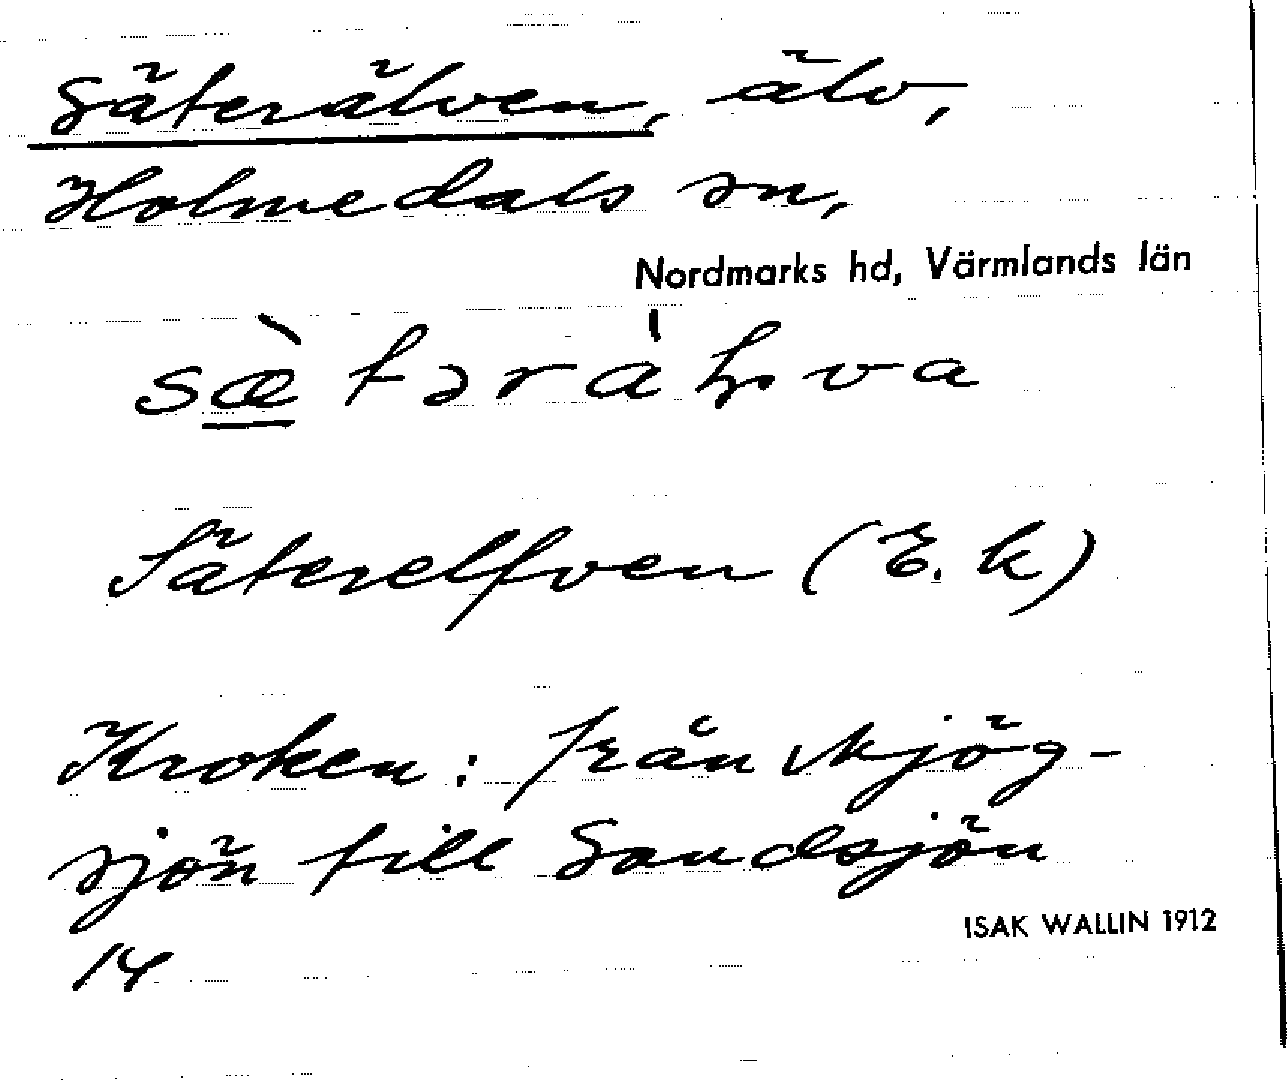 Säterälven, älv,
Holmedals sn,
Nordmarks hd, Värmlands län
sæ̀təràlva
Säterelfven (E. k)
Kroken: från skjög-
sjön till Sandsjön
ISAK WALLIN 1912
14